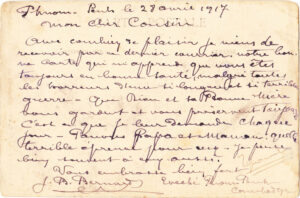 Phnom-Penh le 28 avril 1917
Mon cher Cousin
Avec combien de plaisir je viens de
recevoir par le dernier courrier votre bonne
carte qui m'apprend que vous êtes
toujours en bonne santé malgré toutes
les horreurs d'une si longue et si terrible
guerre - Que Dieu et sa Bonne Mère
vous gardent et vous préservent toujours
C'est ce que je leur demande chaque
jour - Pauvres Papa et Maman! quelle
terrible épreuve pour eux - je pense
bien souvent à eux aussi.
Vous embrasse bien fort
J. B. Bernard
Evêché Phnom Penh
Cambodge